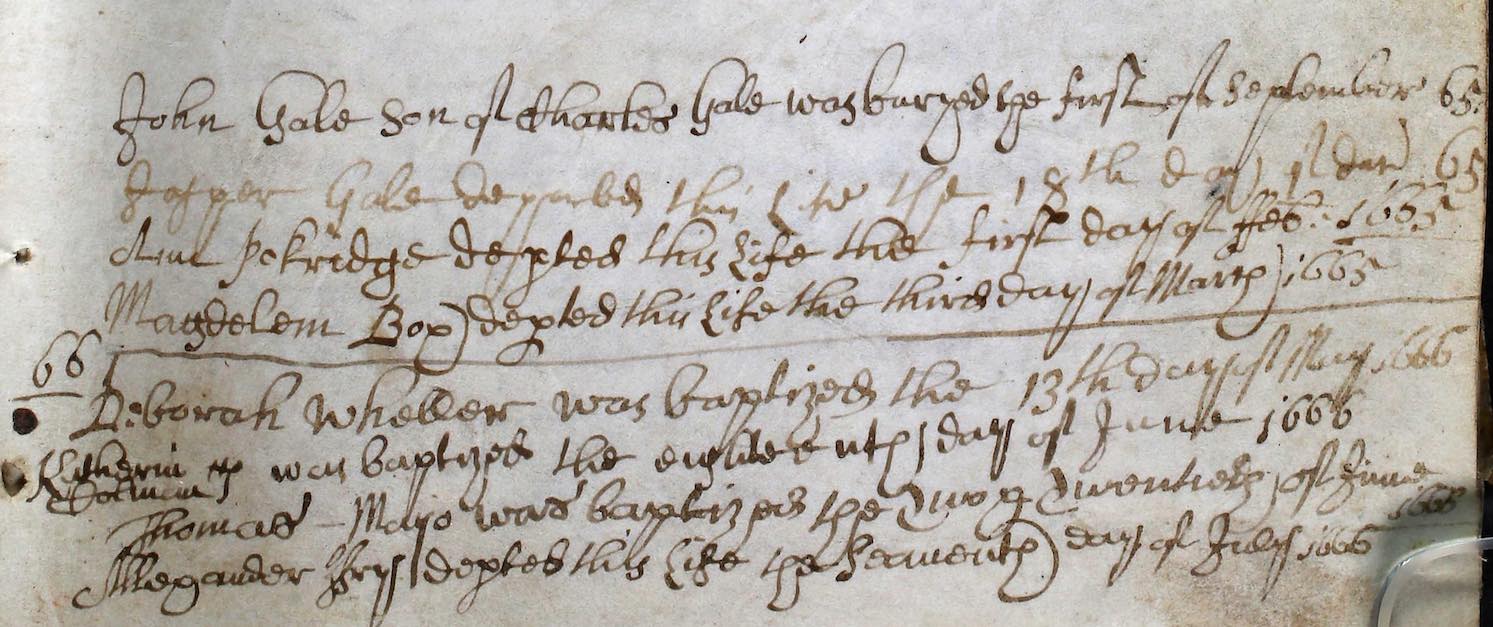 John Gale son of Charles Gale was buryed the first of September 65
Jasper Gale departed this Life the 18th day of 65
Ann Pokridge depted this Life the first day of Feb: 1665
Magdelem Box depted this Life the third day of March 1665
66
Deborah Wheller was baptized the 13th day of May 1666
Katherin was baptized the eighteenth day of June 1666
Dolman
Thomas Mayo was baptized the two & twentieth of June
1666
Allexander Fry depted this Life the Seaventh day of July 1666